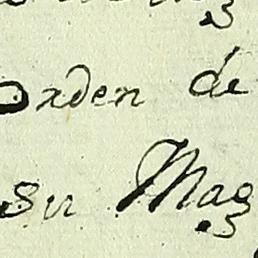 Orden de
Su Mag